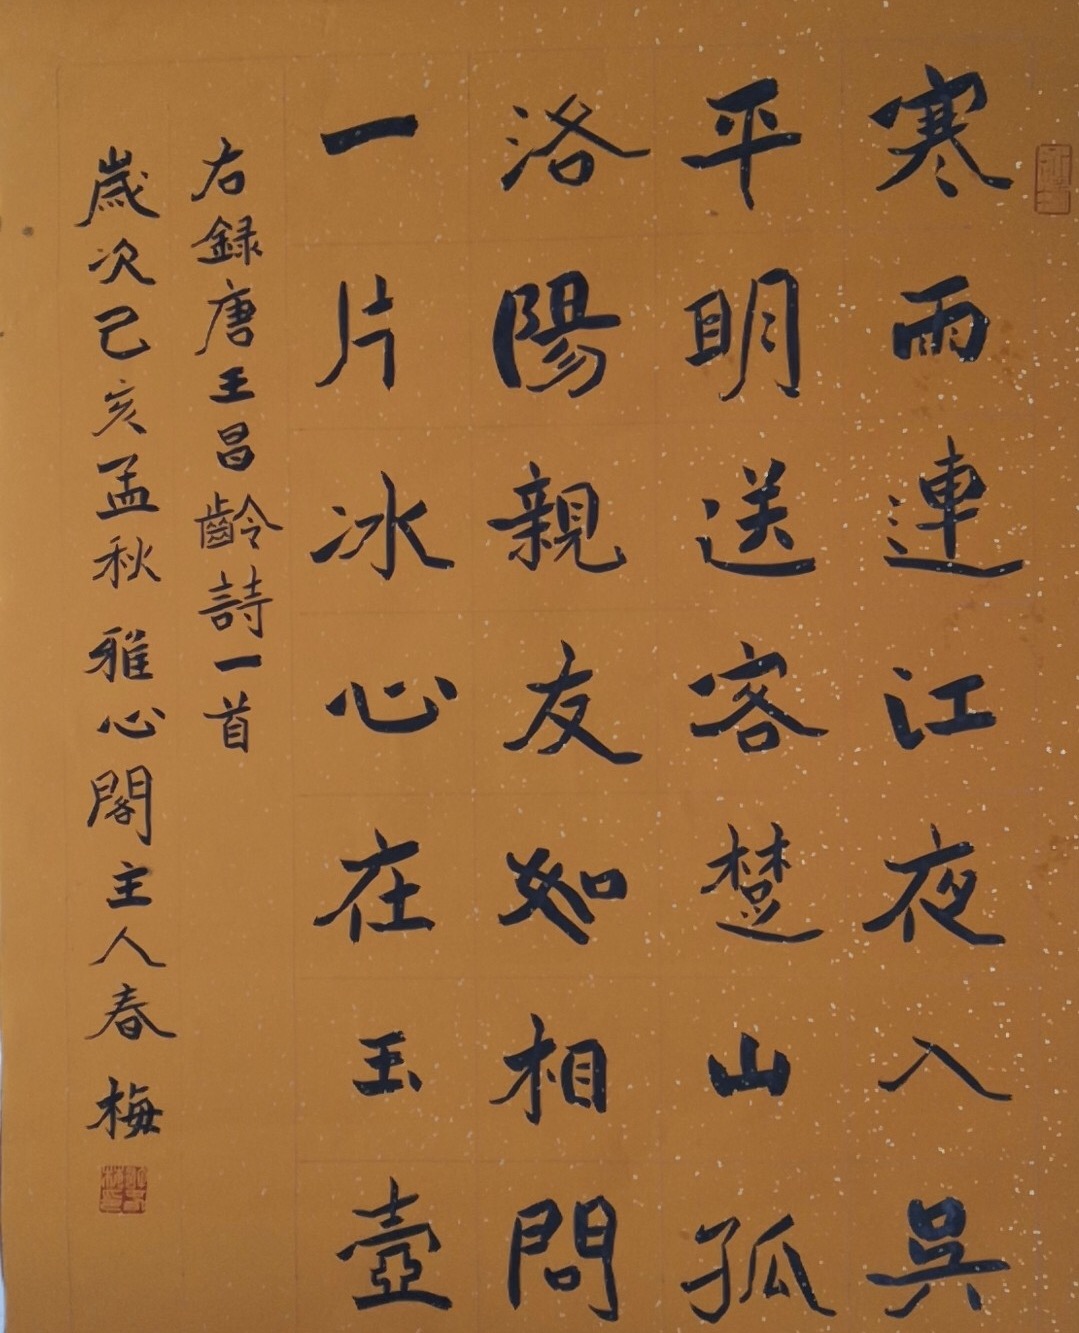 寒雨連江夜入吳
平明送客楚山孤
洛陽親友如相問
一片冰心在玉壺
右録唐王昌齡詩一首
歲次己亥孟秋雅心閣主人春梅